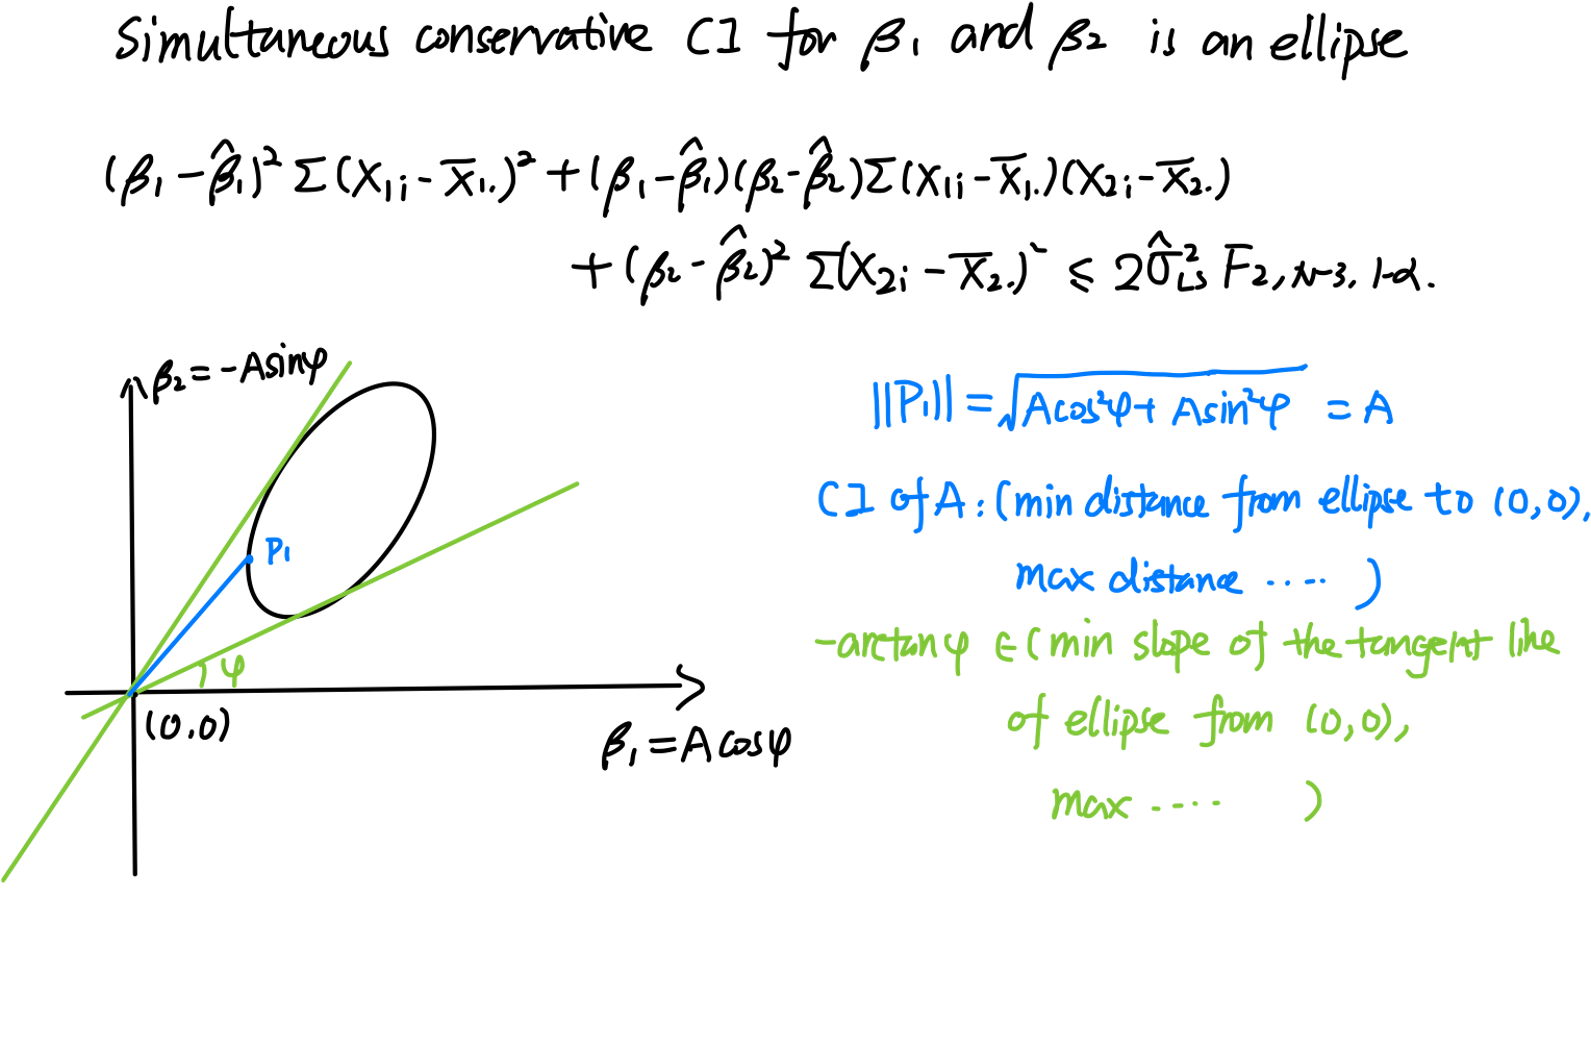 Simultaneous conservative CI for β₁ and β₂ is an ellipse
(β₁ - β̂₁)² Σ (X₁ᵢ - X̄₁.)² + (β₁ - β̂₁)(β₂ - β̂₂) Σ (X₁ᵢ - X̄₁.)(X₂ᵢ - X̄₂.)
+ (β₂ - β̂₂)² Σ(X₂ᵢ - X̄₂.)² ≤ 2σ̂²_LS F₂,N-3, 1-α.
β₂ = -Asinφ
||P₁|| = √(Acos²φ + Asin²φ) = A
CI of A: (min distance from ellipse to (0,0),
max distance ..... )
P₁
-arctanφ ∈ (min slope of the tangent like
of ellipse from (0,0),
max ..... )
φ
(0,0)
β₁ = Acosφ